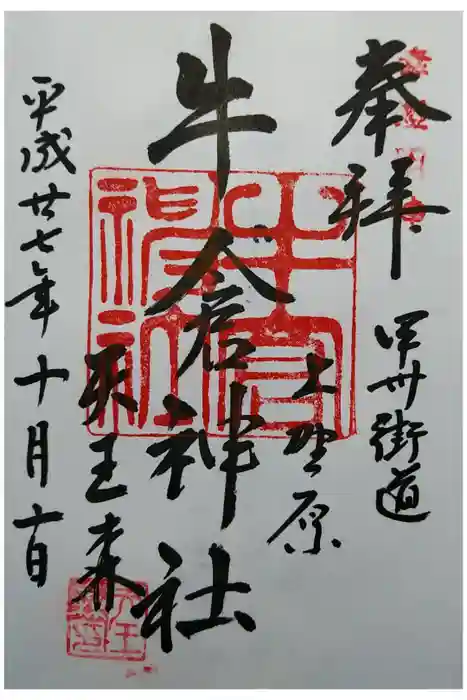 奉拝
甲州街道
上野原
牛倉神社
天王森
平成廿七年十月日